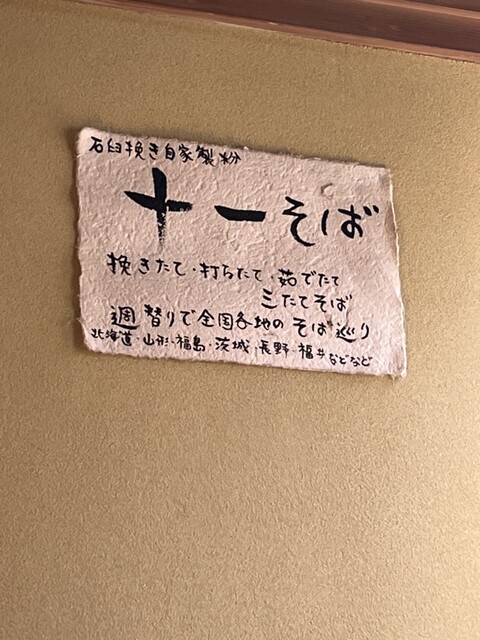 石臼挽き自家製粉
十一そば
挽きたて・打ちたて・茹でたて
三たてそば
週替りで全国各地のそば巡り
北海道・山形・福島・茨城・長野・福井などなど